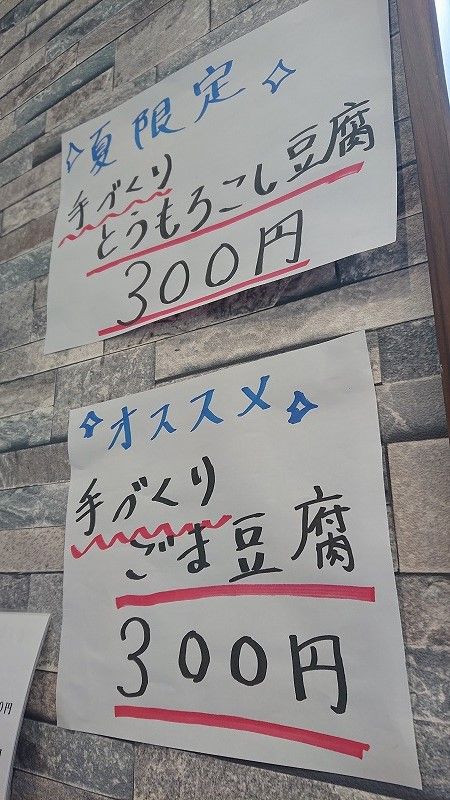 夏限定
手づくり
とうもろこし豆腐
300円
オススメ
手づくり
ごま豆腐
300円
0円